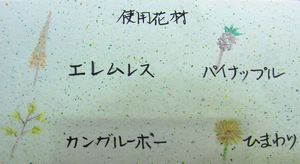 使用花材
エレムレス
パイナップル
カングルーボー
ひまわり